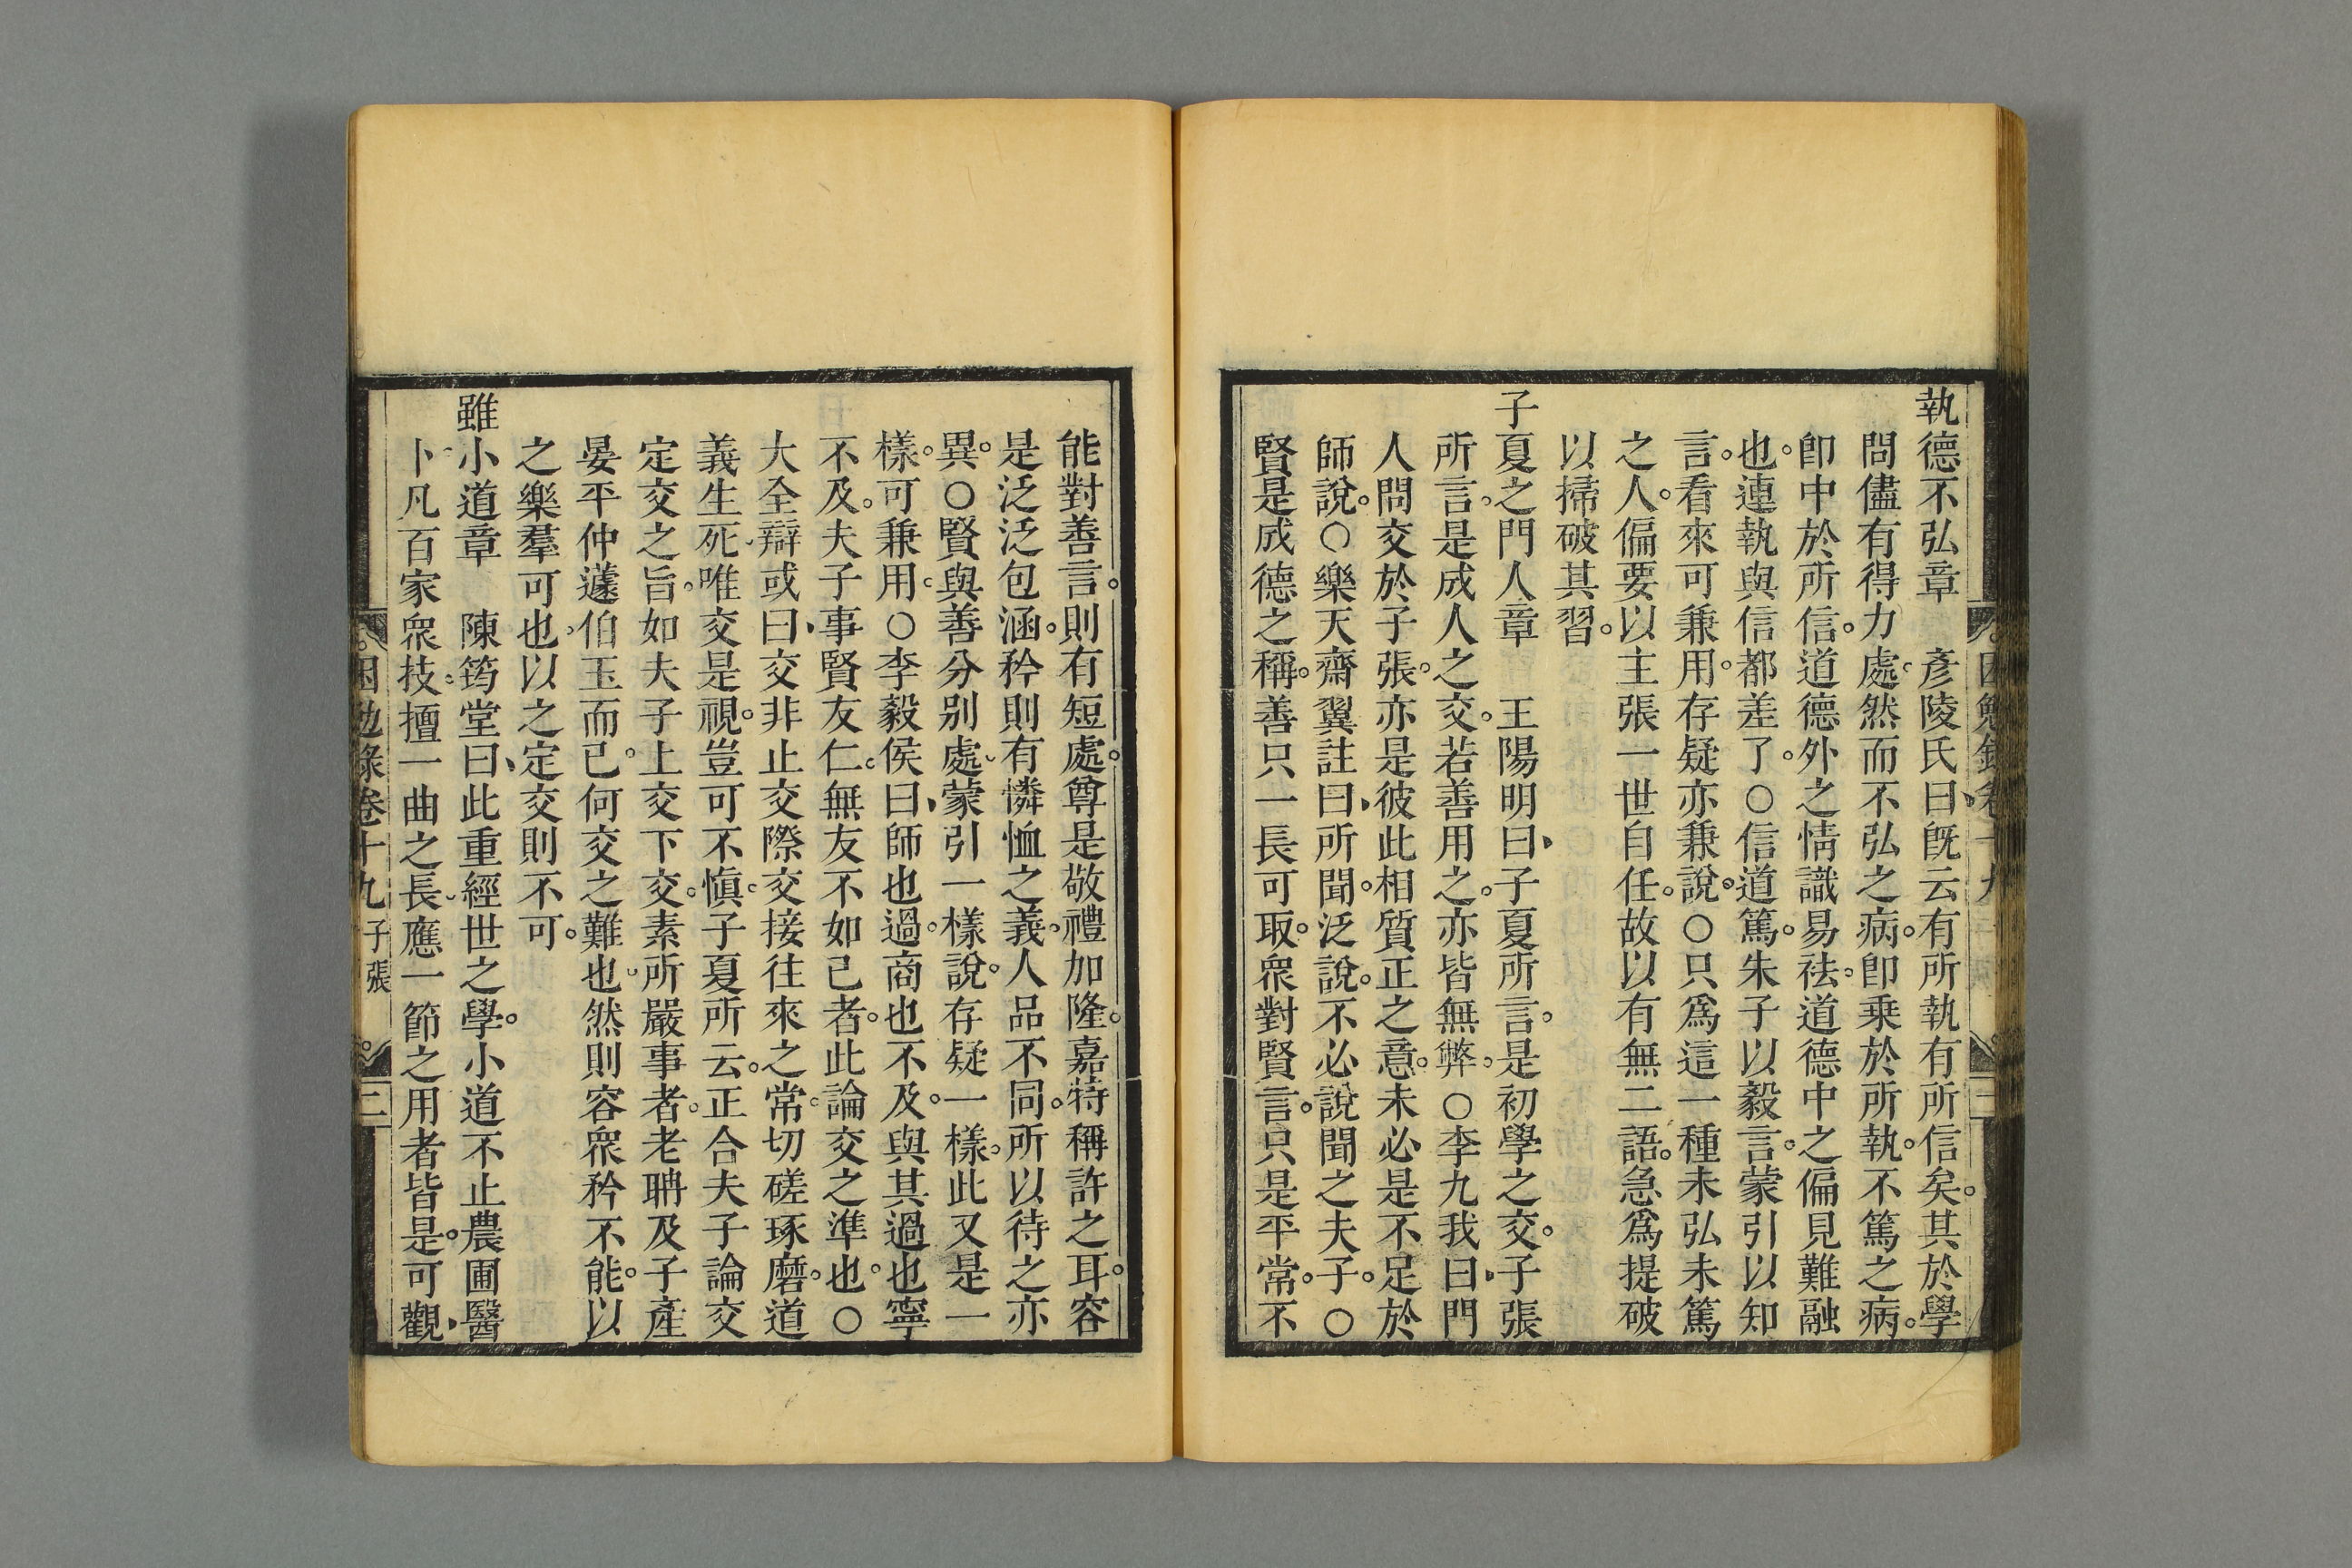 執德不弘章　彥陵氏曰旣云有所執有所信矣其於學
問儘有得力處然而不弘之病卽乗於所執不篤之病
卽中於所信道德外之情識易祛道德中之偏見難融
也連執與信都差了○信道篤朱子以毅言蒙引以知
言看來可兼用存疑亦兼說○只爲這一種未弘未篤
之人偏要以主張一世自任故以有無二語急爲提破
以掃破其習
子夏之門人章　王陽明曰子夏所言是初學之交子張
所言是成人之交若善用之亦皆無弊○李九我曰門
人問交於子張亦是彼此相質正之意未必是不足於
師說○樂天齋翼註曰所聞泛說不必說聞之夫子○
賢是成德之稱善只一長可取衆對賢言只是平常不
能對善言則有短處尊是敬禮加隆嘉特稱許之耳容
是泛泛包涵矜則有憐恤之義人品不同所以待之亦
異○賢與善分別處蒙引一樣說存疑一樣此又是一
樣可兼用○李毅侯曰師也過商也不及與其過也寧
不及夫子事賢友仁無友不如己者此論交之準也○
大全辯或曰交非止交際交接往來之常切磋琢磨道
義生死唯交是視豈可不愼子夏所云正合夫子論交
定交之旨如夫子上交下交素所嚴事者老聃及子產
晏平仲蘧伯玉而已何交之難也然則容衆矜不能以
之樂羣可也以之定交則不可
雖小道章　陳筠堂曰此重經世之學小道不止農圃醫
卜凡百家衆技擅一曲之長應一節之用者皆是可觀
困勉錄卷十九 子張 二